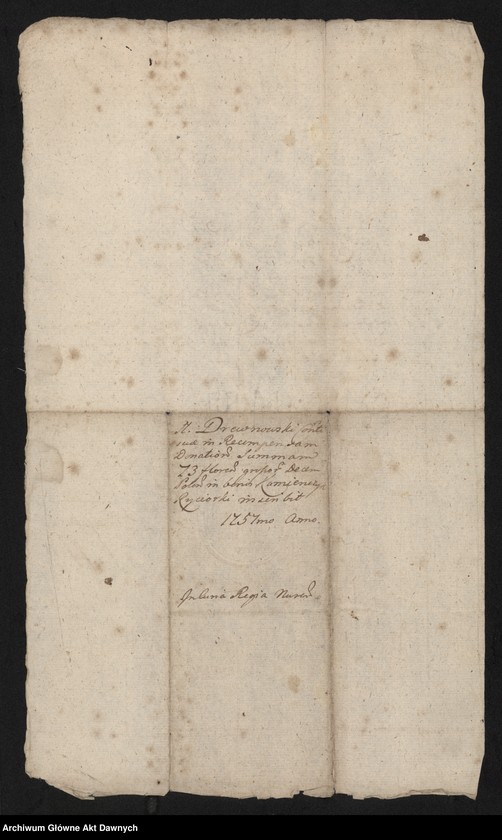 M. Drewnowski
suæ in Recompensam
Donation̄ Summam
73 floren̄ gross̄ Decem
Polon̄ in bonis Kamieneƶ
Ryciorki inscribit
1757mo Anno.
In Curia Regia Nuren̄
Archiwum Główne Akt Dawnych